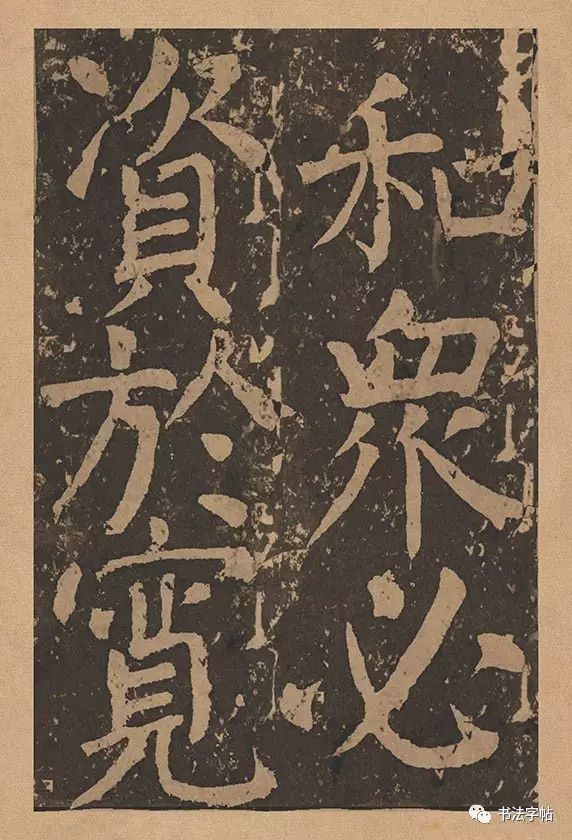 和衆必
資於寬
书法字帖